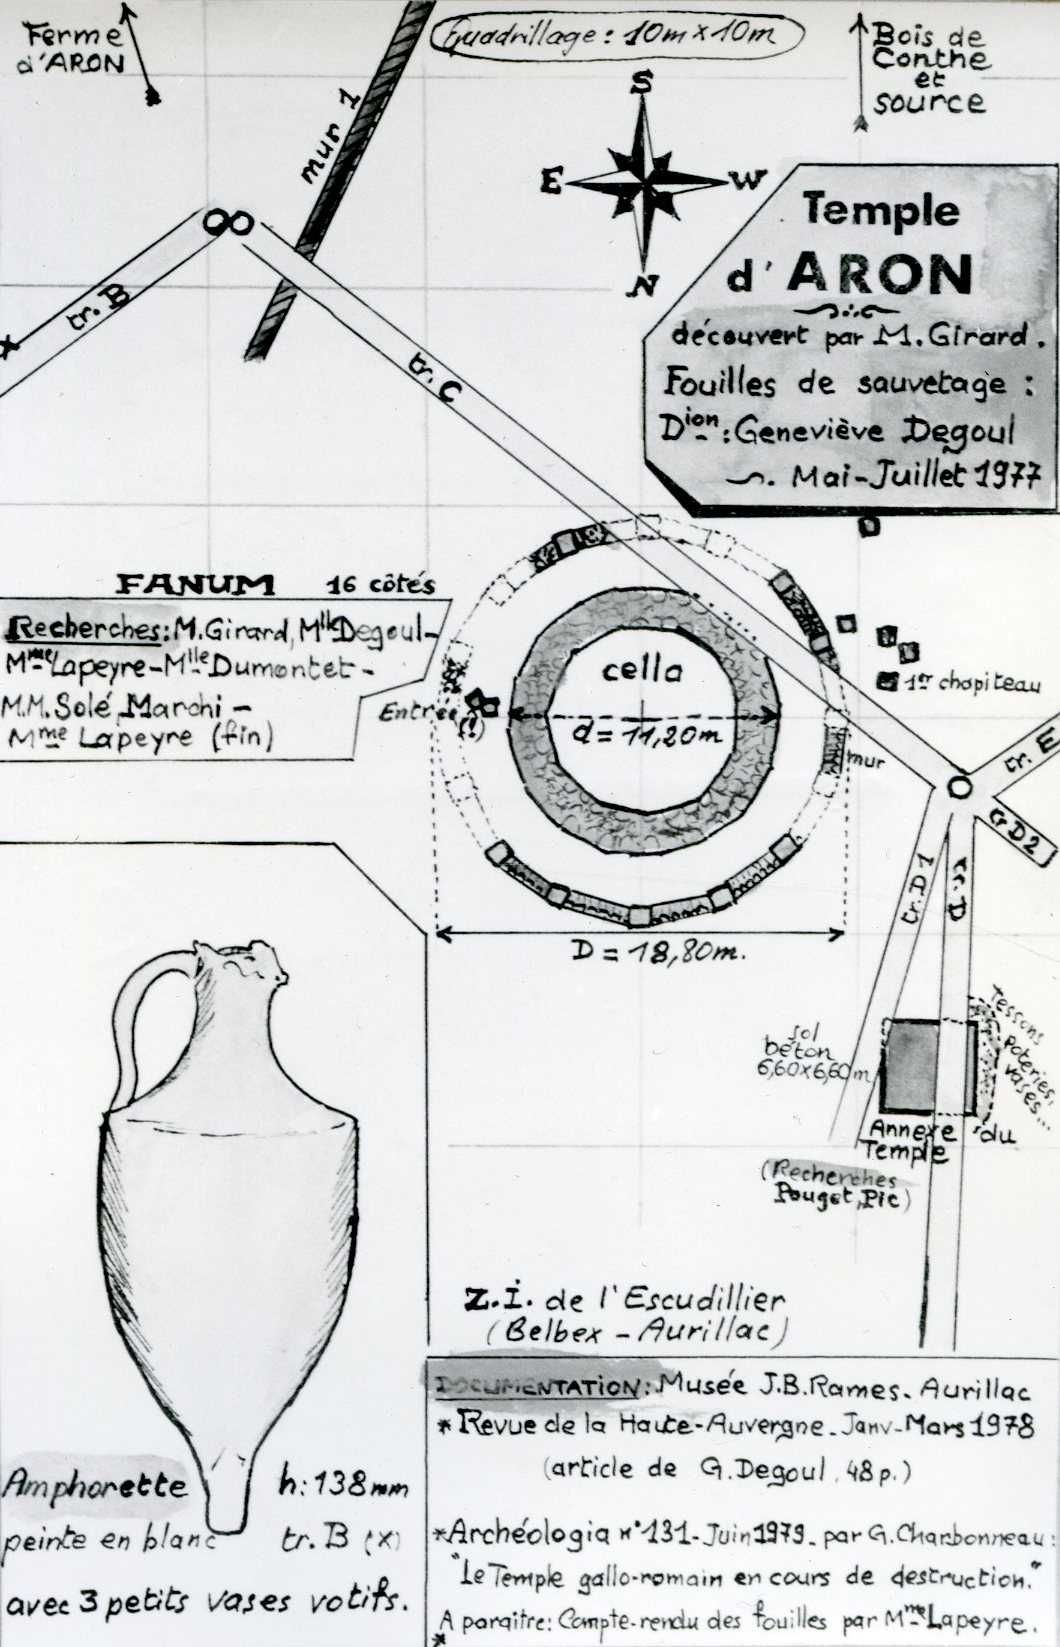 Ferme
d'ARON
mur 1
Quadrillage: 10m x 10m
Bois de
Conthe
et
source
S
E
W
N
Temple
d'ARON
découvert par M. Girard.
Fouilles de sauvetage :
Dion: Geneviève Degoul
Mai-Juillet 1977
tr. B
tr. C
FANUM 16 côtés
Recherches: M. Girard, Mlle Degoul-
Mme Lapeyre-Mlle Dumontet-
M.M. Solé, Marchi -
Mme Lapeyre (fin)
Entrée
(!)
cella
d = 11,20m
mur
1er chapiteau
tr. E
tr D2
tr. D1
tr. D
D = 18,80m.
sol
béton
6,60x6,60m
tessons
poteries,
vases...
Annexe du
Temple
(Recherches
Pouget, Pic)
Z.i. de l'Escudillier
(Belbex - Aurillac)
Amphorette h: 138mm
peinte en blanc tr. B (x)
avec 3 petits vases votifs.
DOCUMENTATION: Musée J.B. Rames. Aurillac
* Revue de la Haute-Auvergne. Janv-Mars 1978
(article de G. Degoul, 48p.)
* Archéologia n° 131- Juin 1979. par G. Charbonneau:
"Le Temple gallo-romain en cours de destruction."
* A paraitre: Compte-rendu des fouilles par Mme Lapeyre.